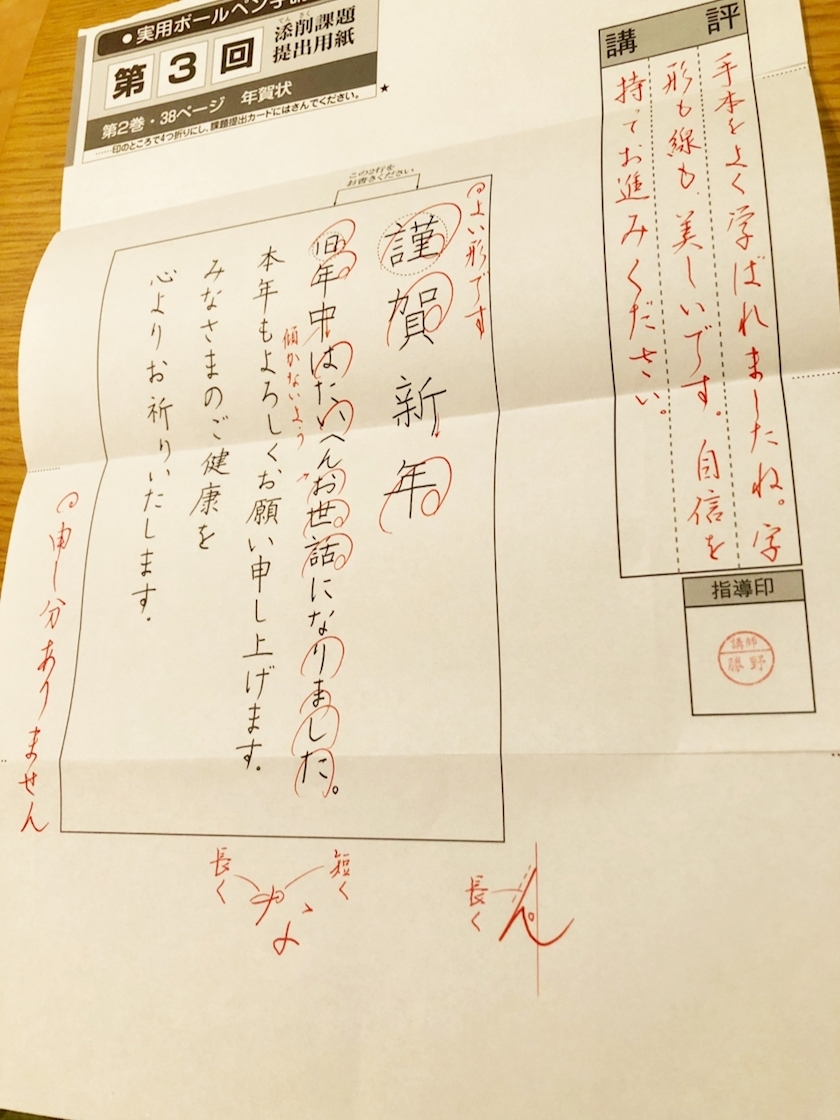 ●実用ボールペン字
第3回
添削課題
てんさく
提出用紙
第2巻・38ページ 年賀状
……印のところで4つ折りにし、課題提出カードにはさんでください。
★
講評
手本をよく学ばれましたね。字
形も線も美しいです。自信を
持ってお進みください。
指導印
講師
藤野
この2行を
お書きください
よい形です
謹賀新年
旧年中はたいへんお世話になりました。
傾かないよう
本年もよろしくお願い申し上げます。
みなさまのご健康を
心よりお祈りいたします。
申し分ありません
長く
ん
短く
な
長く